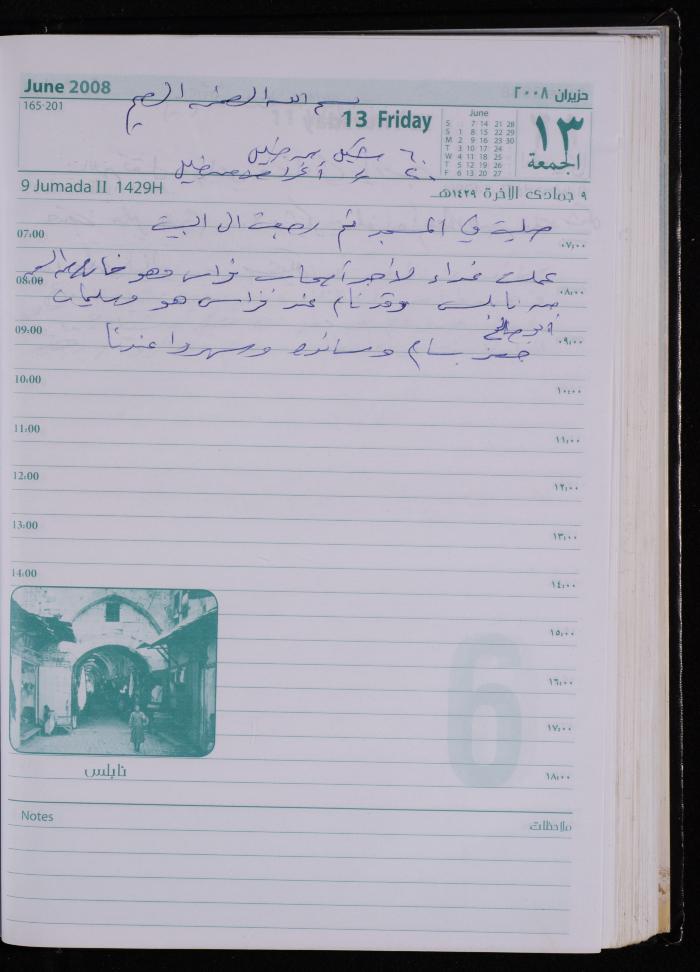 June 2008
حزيران ٢٠٠٨
165-201
بسم الله الرحمن الرحيم
13 Friday
June
S 7 14 21 28
S 1 8 15 22 29
M 2 9 16 23 30
T 3 10 17 24
W 4 11 18 25
T 5 12 19 26
F 6 13 20 27
١٣
الجمعة
٦٠ شيكل من
٢٠ أغراض
9 Jumada II 1429H
٩ جمادى الآخرة ١٤٢٩هـ
صليت في المسجد ثم رجعت الى البيت
07:00
٠٧:٠٠
عملت غداء لأجر أصحاب فراس وهو
08:00
٠٨:٠٠
من نابلس وقد نام عند فراس هو وسليمان
أبو صالح
09:00
٠٩:٠٠
حضر بسام وسائده وسهروا عندنا
10:00
١٠:٠٠
11:00
١١:٠٠
12:00
١٢:٠٠
13:00
١٣:٠٠
14:00
١٤:٠٠
١٥:٠٠
6
١٦:٠٠
١٧:٠٠
١٨:٠٠
نابلس
Notes
ملاحظات